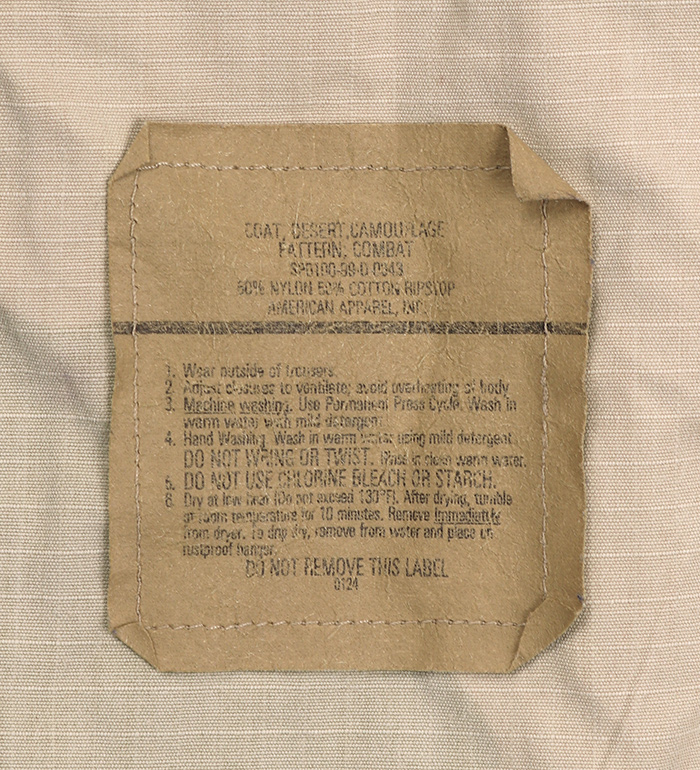 COAT, DESERT CAMOUFLAGE
PATTERN, COMBAT
SP0100-99-D-0343
50% NYLON 50% COTTON RIPSTOP
AMERICAN APPAREL, INC.
1. Wear outside of trousers.
2. Adjust closures to ventilate; avoid overheating of body
3. Machine washing. Use Permanent Press Cycle. Wash in
warm water with mild detergent
4. Hand Washing. Wash in warm water using mild detergent.
DO NOT WRING OR TWIST. Rinse in clean warm water.
5. DO NOT USE CHLORINE BLEACH OR STARCH.
6. Dry at low heat (Do not exceed 130°F). After drying, tumble
at room temperature for 10 minutes. Remove immediately
from dryer. To drip dry, remove from water and place on
rustproof hanger.
DO NOT REMOVE THIS LABEL
0124